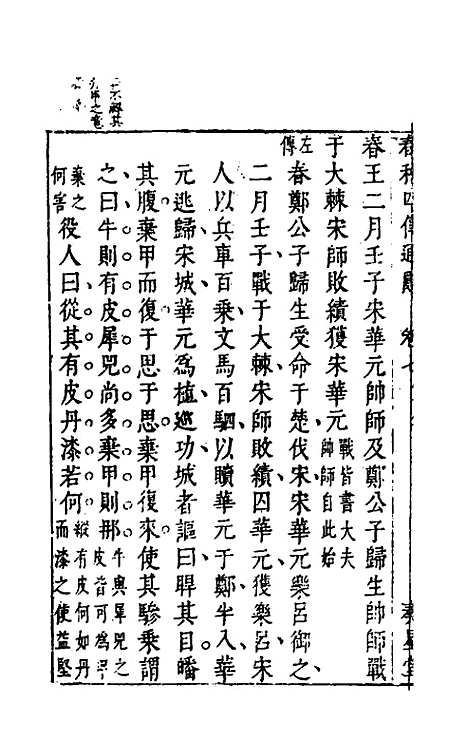 春王二月壬子宋華元帥師及鄭公子歸生帥師戰
于大棘宋師敗績獲宋華元戰皆書大夫帥師自此始
左傳春鄭公子歸生受命于楚伐宋宋華元樂呂御之
二月壬子戰于大棘宋師敗績囚華元獲樂呂宋
人以兵車百乘文馬百駟以贖華元于鄭半入華
元逃歸宋城華元為植巡功城者謳曰睅其目皤
其腹棄甲而復于思于思棄甲復來使其驂乘謂
之曰牛則有皮犀兕尚多棄甲則那牛與犀兕之皮皆可為甲
棄之何害役人曰從其有皮丹漆若何縱有皮何如丹而漆之使益堅